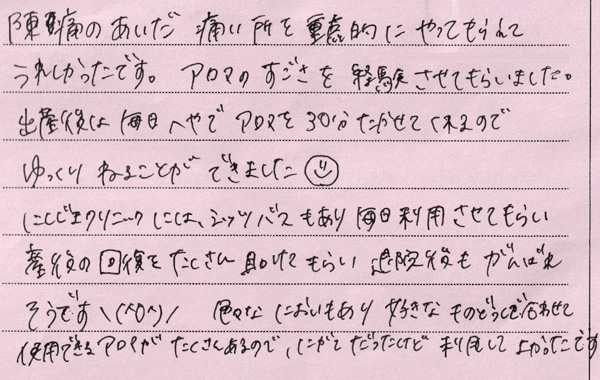 陣痛のあいだ 痛い所を重点的にやってもらえて
うれしかったです。 アロマのすごさを 経験させてもらいました。
出産後は毎日へやで アロマを30分たかせてくれるので
ゆっくり ねることが できました
にしじまクリニックには、シッツバスもあり 毎日利用させてもらい
産後の回復をたくさん 助けてもらい 退院後も がんばれ
そうです \(^o^)/ 色々な においもあり 好きな ものどうしを合わせて
使用できるアロマが たくさんあるので、にがてだったけど 利用して よかったです